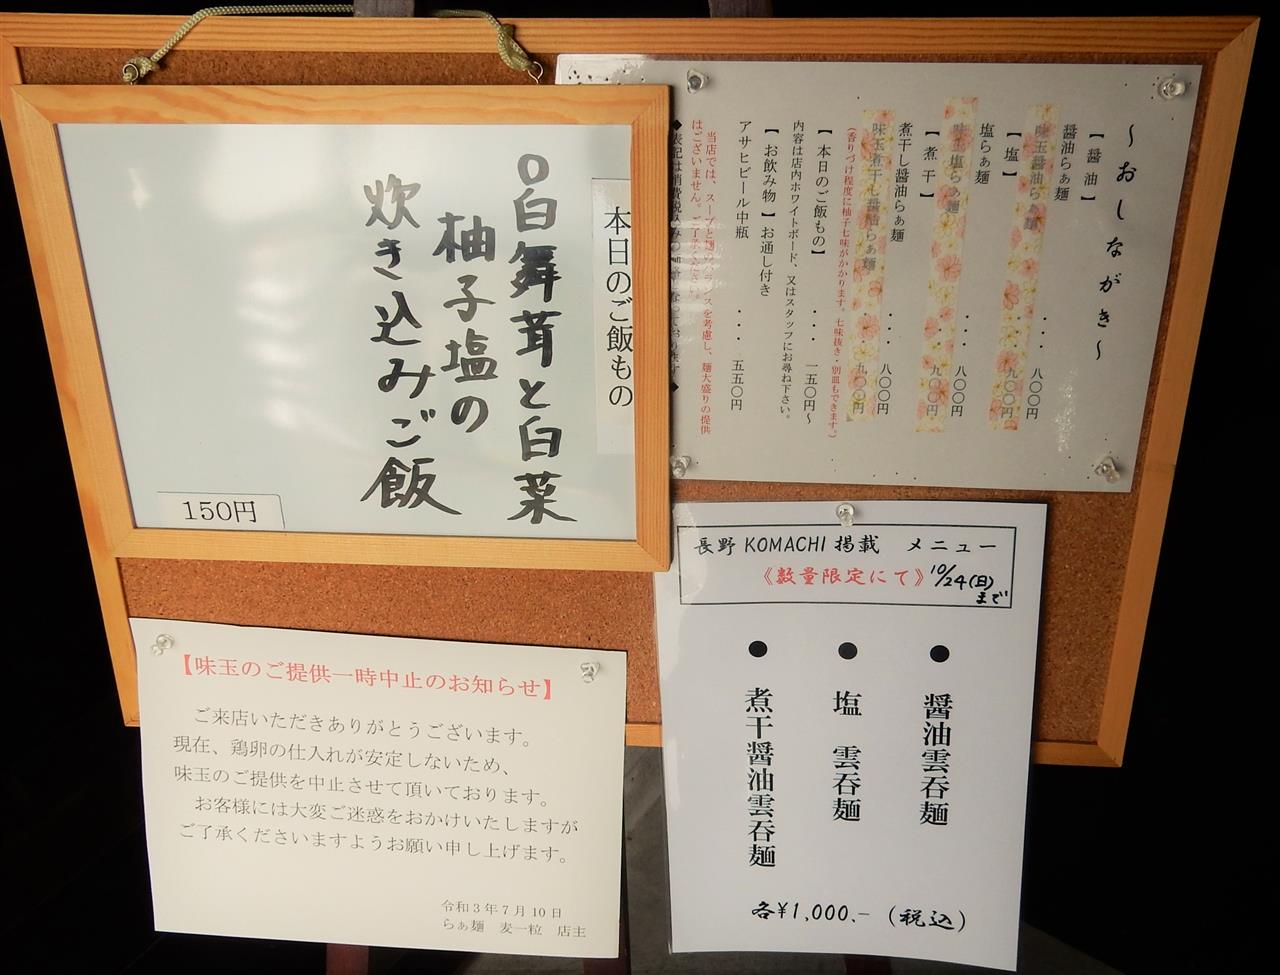 〜おしながき〜
【醤油】
醤油らぁ麺 ・・・ 八〇〇円
味玉醤油らぁ麺 ・・・ 九〇〇円
【塩】
塩らぁ麺 ・・・ 八〇〇円
味玉塩らぁ麺 ・・・ 九〇〇円
【煮干】
煮干し醤油らぁ麺 ・・・ 八〇〇円
味玉煮干し醤油らぁ麺 ・・・ 九〇〇円
(香りづけ程度に柚子七味がかかります。七味抜き・別皿もできます。)
【本日のご飯もの】 ・・・ 一五〇円〜
内容は店内ホワイトボード、又はスタッフにお尋ね下さい。
【お飲み物】お通し付き
アサヒビール中瓶 ・・・ 五五〇円
当店では、スープと麺のバランスを考慮し、麺大盛りの提供
はございません。ご了承ください。
本日のご飯もの
白舞茸と白菜
柚子塩の
炊き込みご飯
150円
長野KOMACHI掲載 メニュー
《数量限定にて》10/24(日)まで
●醤油雲呑麺
●塩 雲呑麺
●煮干醤油雲呑麺
各¥1,000.-(税込)
【味玉のご提供一時中止のお知らせ】
ご来店いただきありがとうございます。
現在、鶏卵の仕入れが安定しないため、
味玉のご提供を中止させて頂いております。
お客様には大変ご迷惑をおかけいたしますが
ご了承くださいますようお願い申し上げます。
令和3年7月10日
らぁ麺 麦一粒 店主